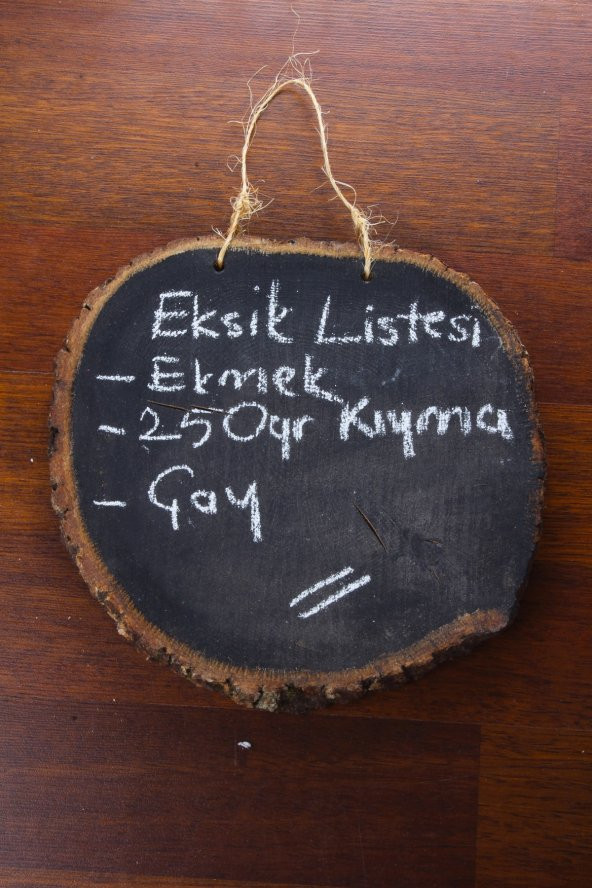 Eksik Listesi
- Ekmek
- 250gr Kıyma
- Çay